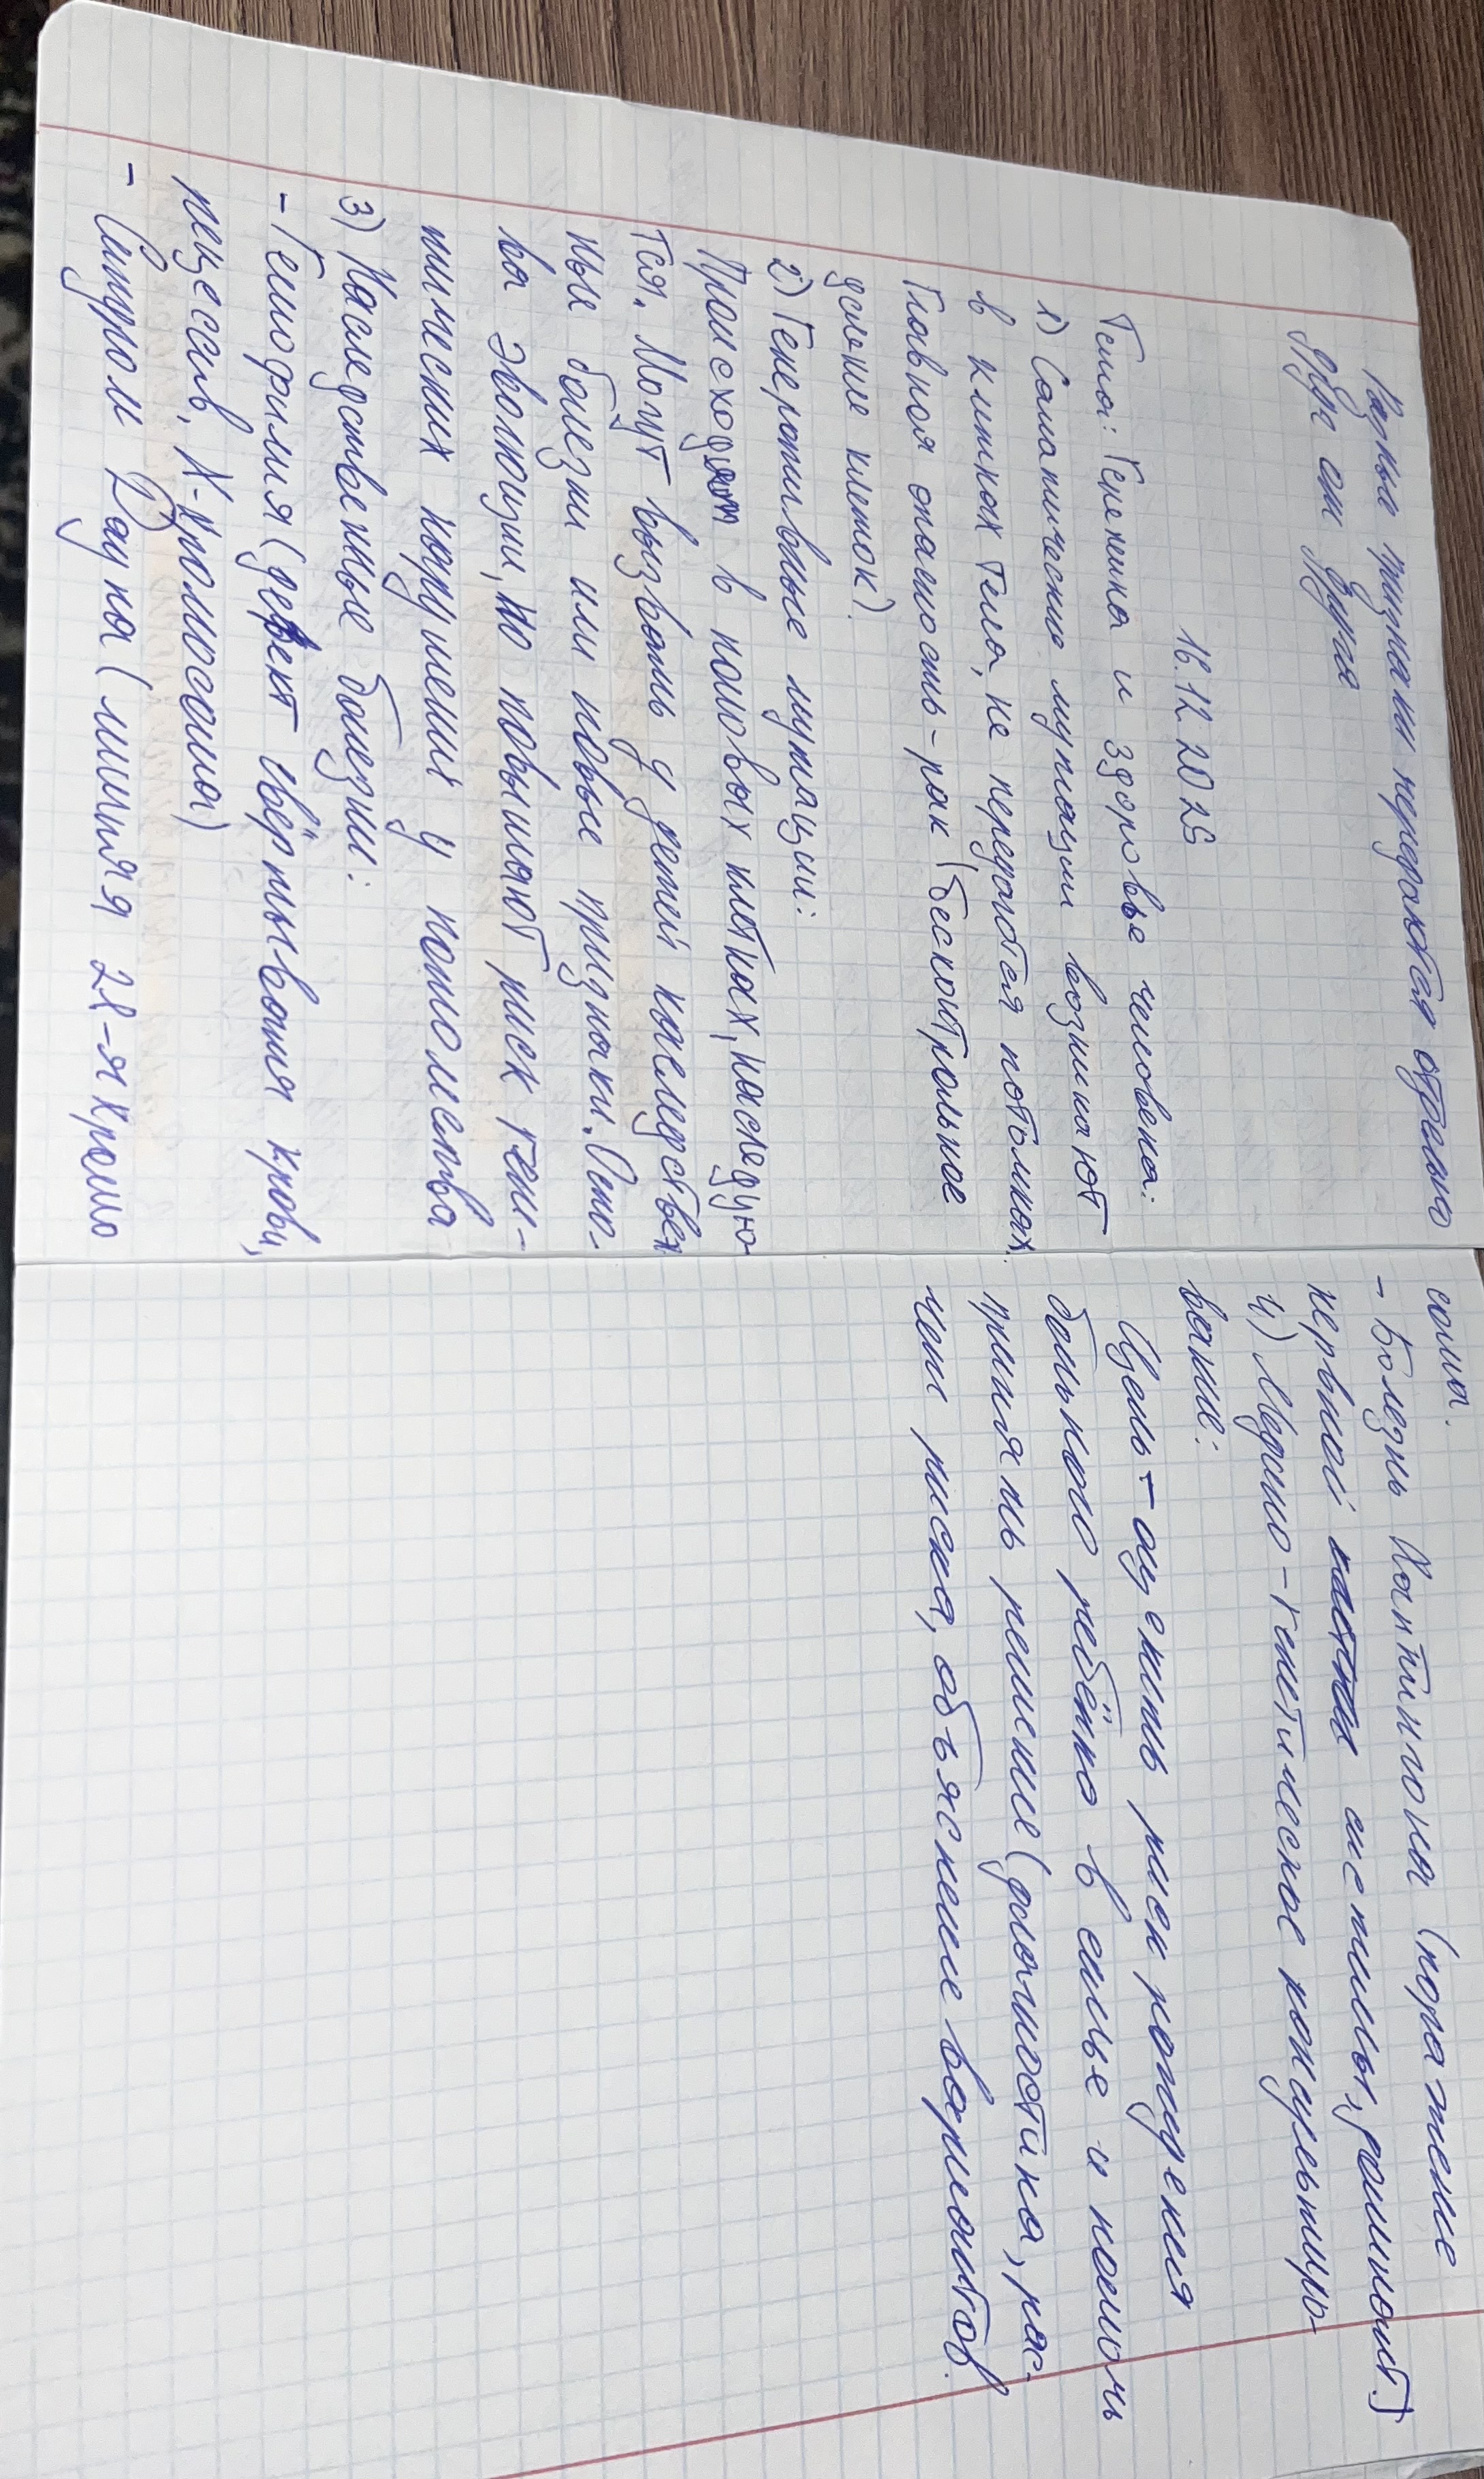 Разные признаки передаются отдельно
друг от друга
16.12.2025
Тема: Генетика и здоровье человека:
1) Соматические мутации возникают
в клетках тела, не передаются потомкам.
Главная опасность - рак (бесконтрольное
деление клеток).
2) Генеративные мутации:
Происходят в половых клетках, наследую-
тся. Могут вызвать у детей наследствен
ные болезни или новые признаки. Осно-
ва эволюции, но повышают риск гене-
тических нарушений у потомства
3) Наследственные болезни:
- Гемофилия (дефект свёртывания крови,
рецессив. Х-хромосома)
- Синдром Дауна (лишняя 21-я хромо
сома.
- Болезнь Хантингтона (поражение
нервной системы, доминант.)
4) Медико-генетическое консультиро-
вание:
Цель - оценить риск рождения
больного ребёнка в семье и помочь
принять решение (диагностика, рас-
чет риска, объяснение вариантов.